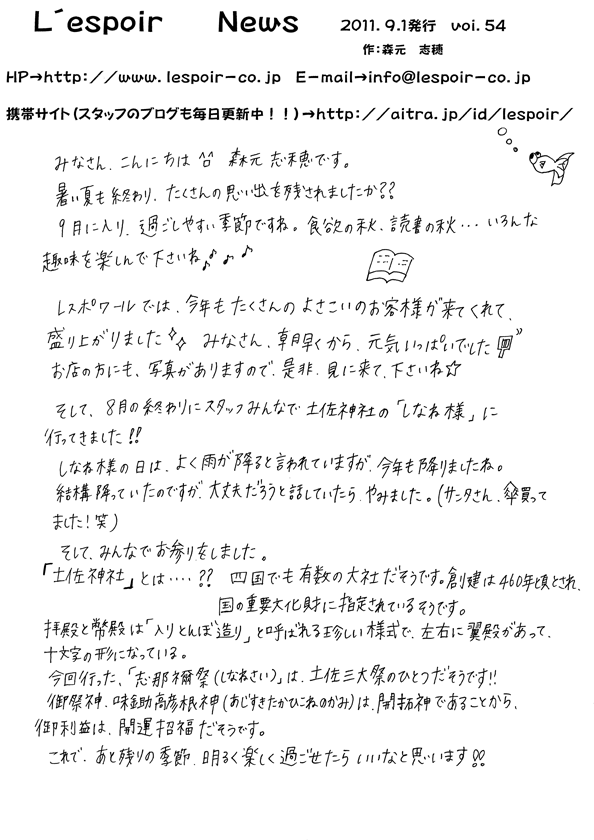 L´espoir News 2011.9.1発行 voi.54
作:森元 志穂
HP→http://www.lespoir-co.jp E-mail→info@lespoir-co.jp
携帯サイト(スタッフのブログも毎日更新中!!)→http://aitra.jp/id/lespoir/
みなさん、こんにちは^^ 森元 志穂です。
暑い夏も終わり、たくさんの思い出を残されましたか??
9月に入り、過ごしやすい季節ですね。食欲の秋、読書の秋…いろんな
趣味を楽しんで下さいね♪♪♪
レスポワールでは、今年もたくさんのよさこいのお客様が来てくれて、
盛り上がりました みなさん、朝早くから、元気いっぱいでした
お店の方にも、写真がありますので、是非、見に来て、下さいね☆
そして、8月の終わりにスタッフみんなで土佐神社の「しなね様」に
行ってきました!!
しなね様の日は、よく雨が降ると言われていますが、今年も降りましたね。
結構降っていたのですが、大丈夫だろうと話していたら、やみました。(サンタさん、傘買って
ました!笑)
そして、みんなでお参りをしました。
「土佐神社」とは‥‥?? 四国でも有数の大社だそうです。創建は460年頃とされ、
国の重要文化財に指定されているそうです。
拝殿と幣殿は「入りとんぼ造り」と呼ばれる珍しい様式で、左右に翼殿があって、
十文字の形になっている。
今回行った、「志那禰祭(しなねさい)」は、土佐三大祭のひとつだそうです!!
御祭神、味鋤高彦根神(あじすきたかひこねのかみ)は、開拓神であることから、
御利益は、開運招福だそうです。
これで、あと残りの季節、明るく楽しく過ごせたらいいなと思います!!